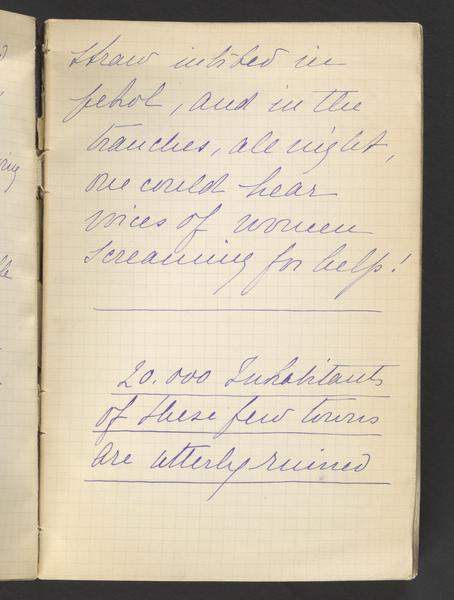 straw imbibed in
petrol, and in the
tranches, all night,
one could hear
voices of women
screaming for help!
20.000 Inhabitants
of these few towns
are utterly ruined